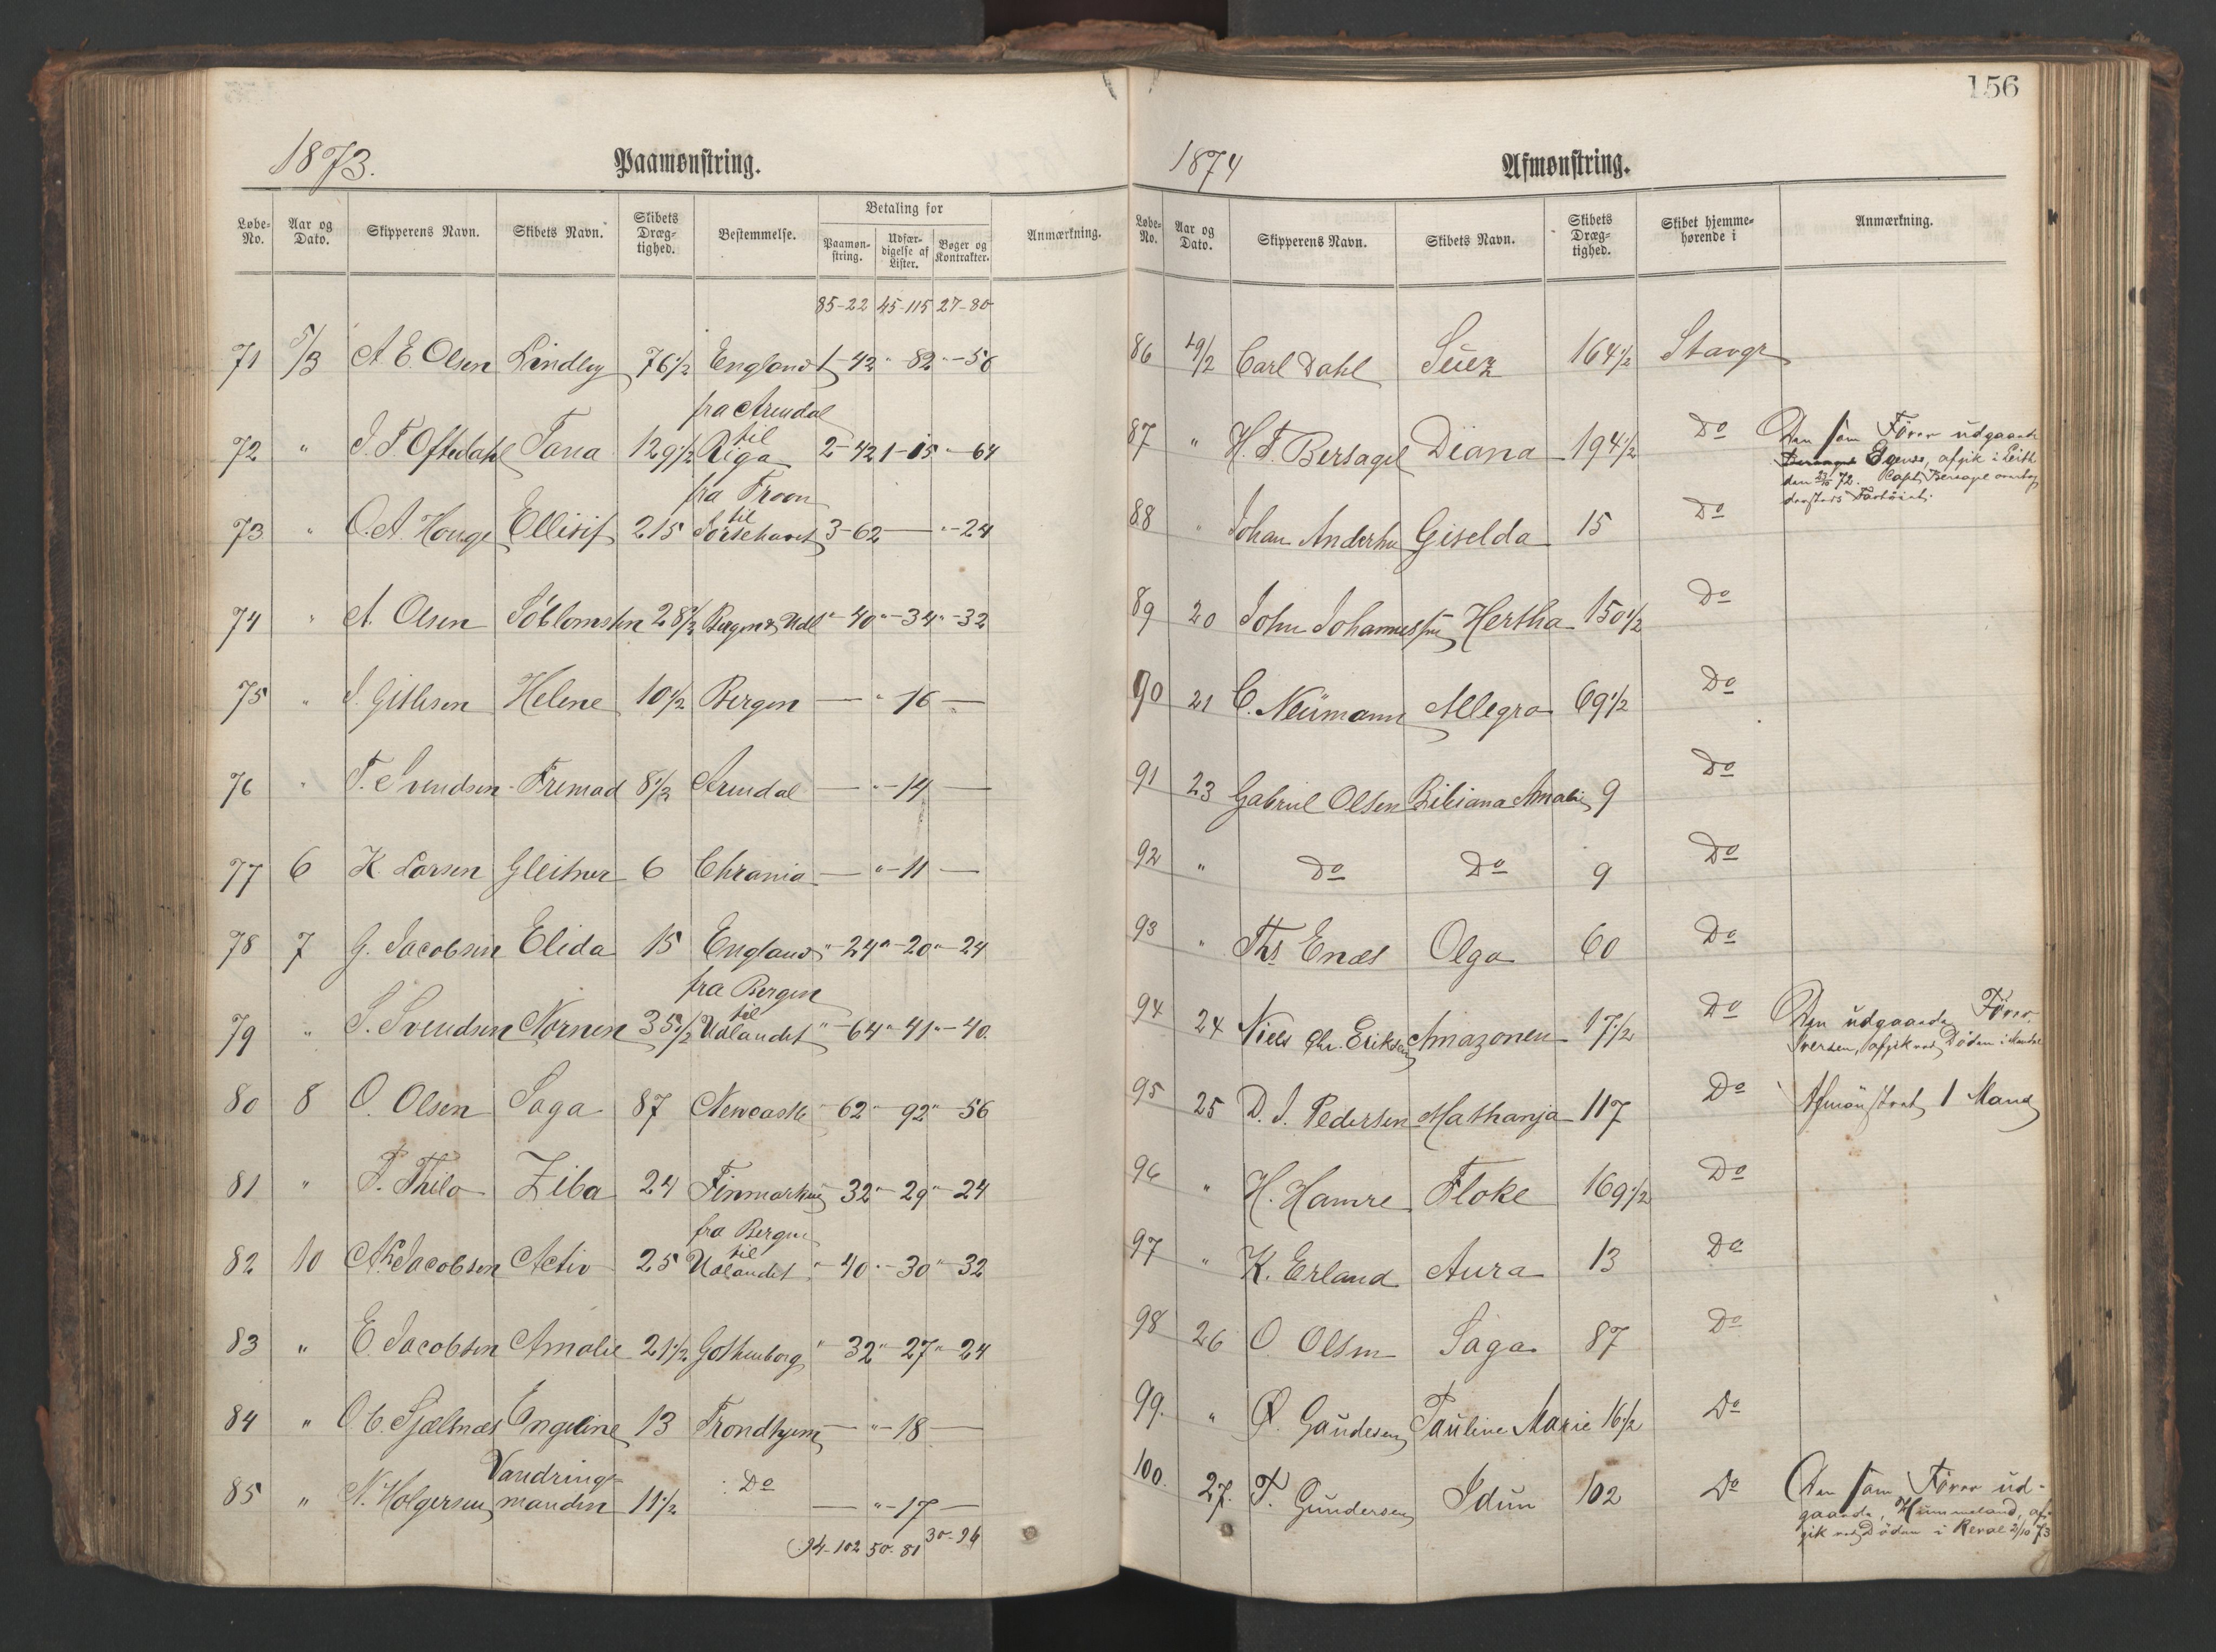 156
1873. Paamønstring.
Løbe-No. Aar og Dato. Skipperens Navn. Skibets Navn. Skibets Dræg-tighed. Bestemmelse. Betaling for Paamøn-string. Udfær-digelse af Lister. Bøger og Kontrakter. Anmærkning.
85-22 45-115 27-80
71 5/3 A E. Olsen Lindley 76 1/2 England 1-42 "-82 "-56
fra Arendal
72 " J. T. Oftedahl Tana 129 1/2 til Riga 2-42 1-15 "-64
fra Troon
73 " O. A. Houge Ellisif 215 til 3-62 — "-24
74 " A. Olsen Söblomsten 28 1/2 Bergen & Udl "-40 "-34 "-32
75 " J. Gitlesen Helene 10 1/2 Bergen — "-16 —
76 " T. Svendsen Fremad 8 1/2 Arendal — "-14 —
77 6 K. Larsen Gleitner 6 Chrania — "-11 —
78 7 G. Jacobsen Elida 15 England "-24 "-20 "-24
fra Bergen
79 " S. Svendsen Nornen 35 1/2 til Udlandet "-64 "-41 "-40
80 8 O. Olsen Saga 87 Newcastle "-62 "-92 "-56
81 " T. Thilo Ziba 24 Finmarken "-32 "-29 "-24
fra Bergen
82 10 Jacobsen Activ 25 til Udlandet "-40 "-30 "-32
83 " E. Jacobsen Amalie 21 1/2 Gothenborg "-32 "-27 "-24
84 " O. C. Sjælnæs Engeline 13 Trondhjem — "-18 —
Vandrings=
85 " N. Holgersen manden 11 1/2 Do — "-17 —
94-102 50-81 30-96
1874 Afmønstring.
Løbe-No. Aar og Dato. Skipperens Navn. Skibets Navn. Skibets Dræg-tighed. Skibet hjemme-hørende i Anmærkning.
86 19/2 Carl Dahl Suez 164 1/2 Stavgr
87 " H. T. Bersagel Diana 194 1/2 Do Den som Fører udgaaede
afgik i Leith
den 72. Capt. Bersagel overtog
dersteds Fartöiet
88 " Johan Andersen Giselda 15 Do
89 20 John Johannessen Hertha 150 1/2 Do
90 21 C. Neümann Allegro 69 1/2 Do
91 23 Gabriel Olsen Bibiana Amalie 9 Do
92 " Do Do 9 Do
93 " Ths Enæs Olga 60 Do
94 24 Niels Chr. Eriksen Amazonen 17 1/2 Do Den udgaaede Fører
Iversen, afgik ved Döden i Mandal
95 25 D. J. Pedersen Mathanja 117 Do Afmönstret 1 Mand
96 " H. Hamre Floke 169 1/2 Do
97 " K. Erland Aura 13 Do
98 26 O Olsen Saga 87 Do
99. " Ø. Gaudesen Pauline Marie 16 1/2 Do
100. 27. T. Gundersen Idun 102 Do Den som Fører ud-
gaaede, Hummeland, af-
gik ved Döden i Reval 2/10 73